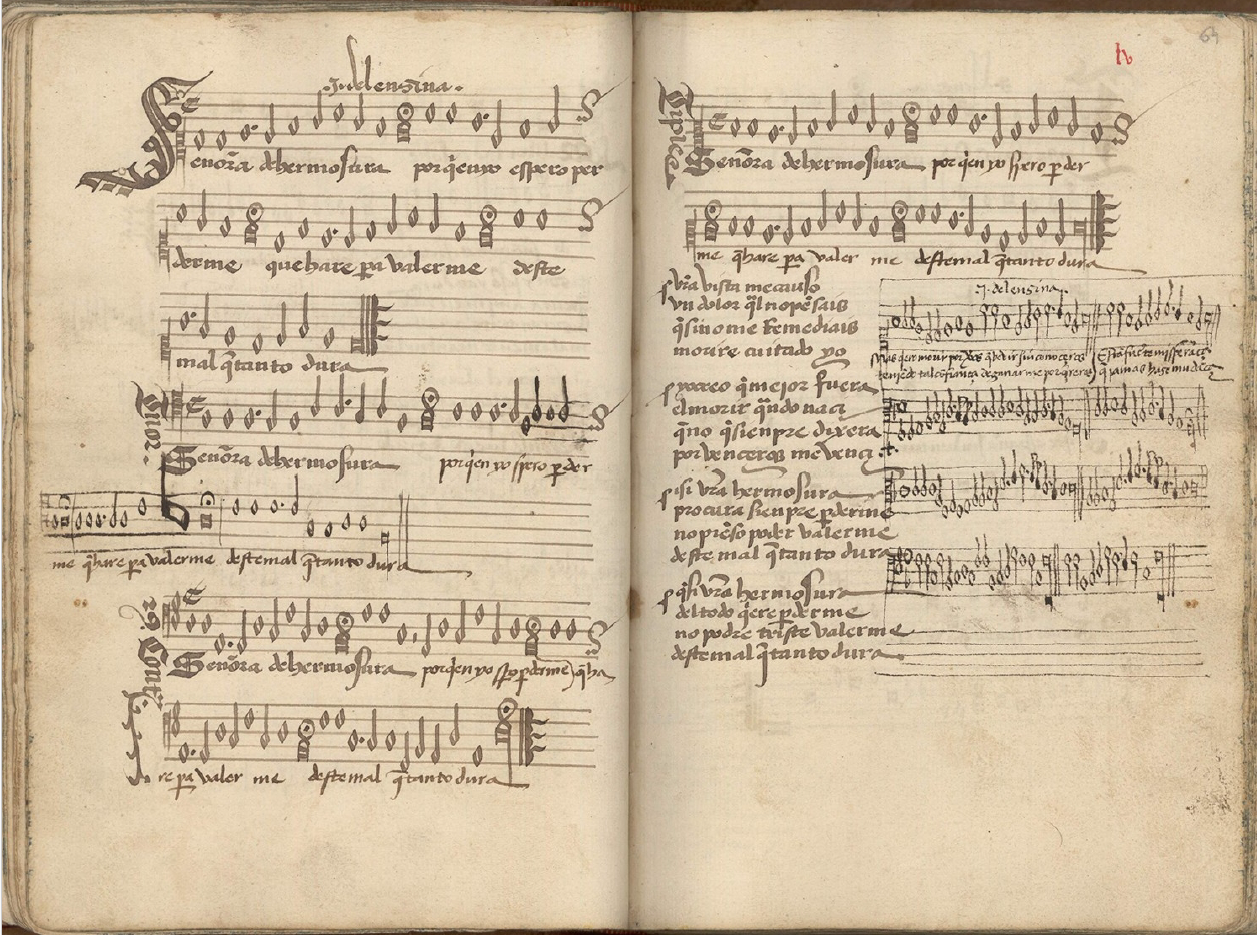 ·J· del enzina·
Señora de hermosura por q̃en yo espero per
derme que hare pa valerme deste
mal q̃ tanto dura
Tenor.
Señora de hermosura por q̃en yo spero p̱der
me q̃ hare pa valerme deste mal q̃ tanto dura
Señora de hermosura por q̃en yo p̱derme q̃ ha
re pa valer me deste mal q̃ tanto dura
lv
Triplee
Señora de hermosura por q̃en yo spero p̱der
me q̃ hare pa valer me deste mal q̃ tanto dura
vr̃a vista me causo
vn dolor q̃l no pẽsais
q̃ si no me Remediais
morire cuitado yo
yo creo q̃ mejor fuera
el morir q̃ndo naci
q̃ no q̃ sienpre dixera
por venceros me venci
si vr̃a hermosura
procura sienpre p̱derme
no piẽso poder valerme
deste mal q̃ tanto dura
q̃ si vr̃a hermosura
del todo q̃ere p̱derme
no podre triste valerme
deste mal q̃ tanto dura
J. del enzina.
Mas q̃ero morir por veros